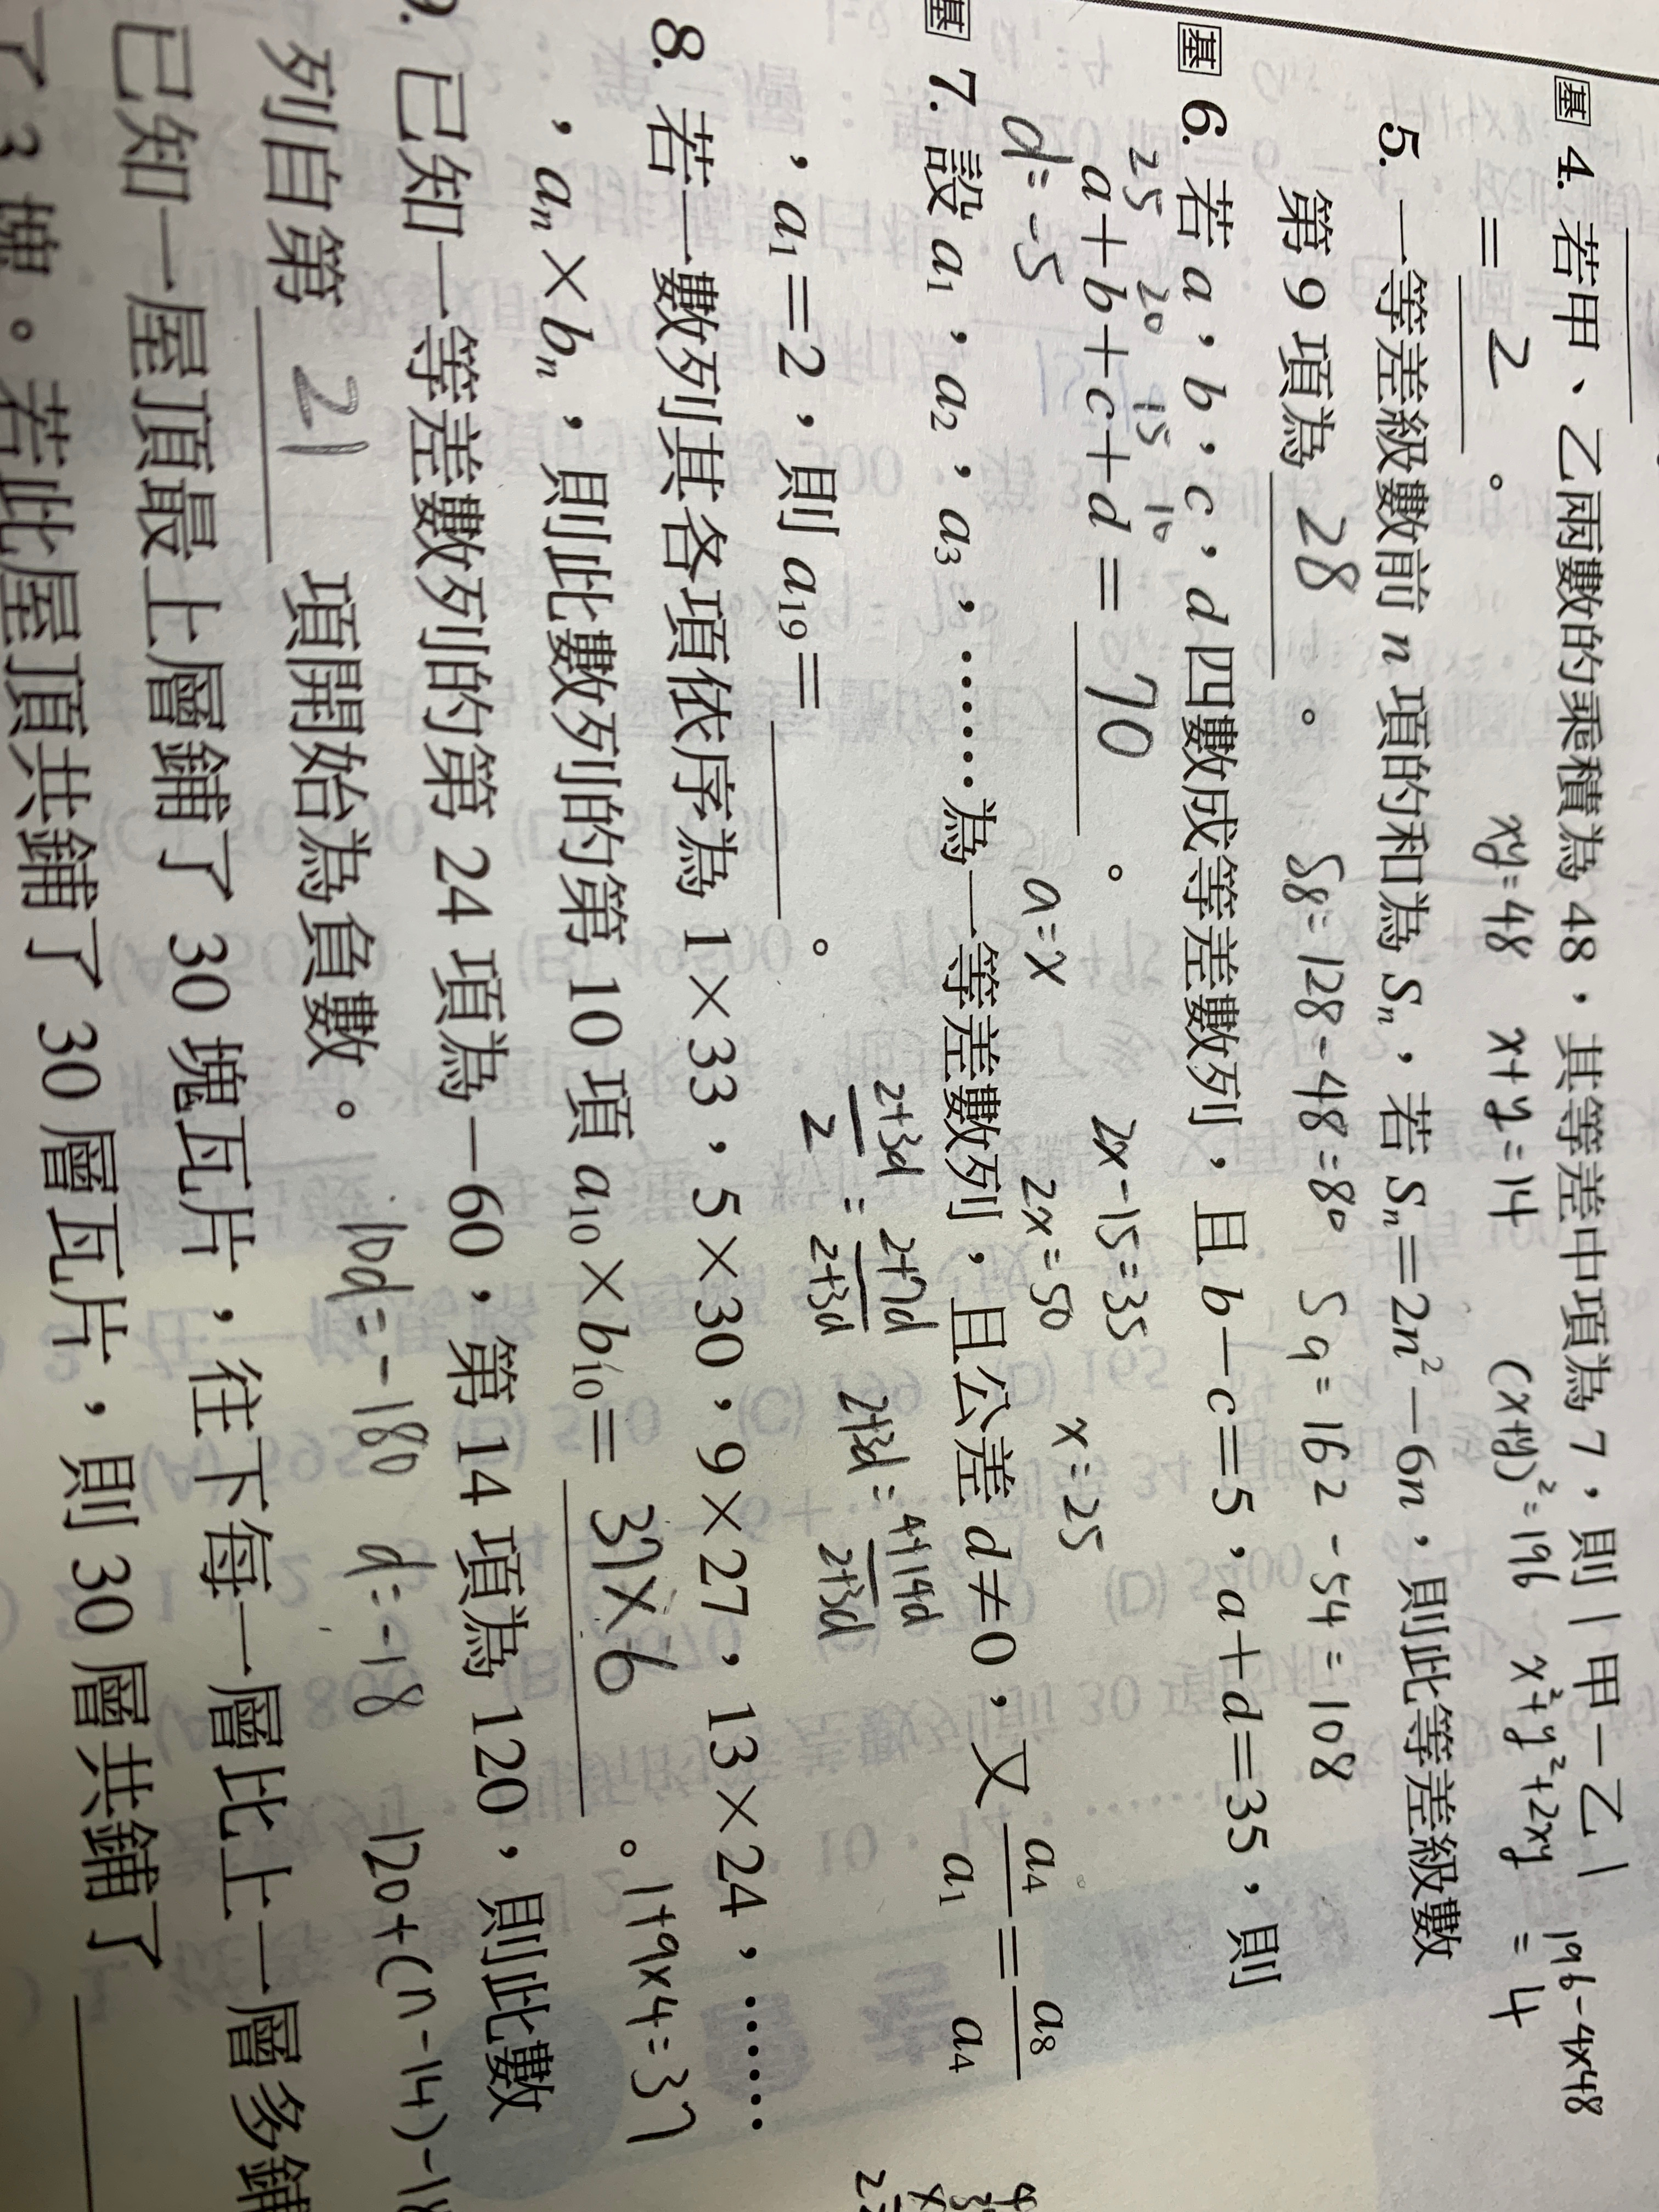 基 4. 若甲、乙兩數的乘積為 48，其等差中項為 7，則｜甲－乙｜
= 2 。
xy=48 x+y=14 (x+y)²=196 x²+y²+2xy
196-4×48
=4
5. 一等差級數前 n 項的和為 Sₙ，若 Sₙ＝2n²－6n，則此等差級數
第 9 項為 28 。 S8=128-48=80 S9=162-54=108
基 6. 若 a，b，c，d 四數成等差數列，且 b－c＝5，a＋d＝35，則
25 20 15 10
a＋b＋c＋d＝ 70 。 2x-15=35
d=-5 a=x 2x=50 x=25
基 7. 設 a₁，a₂，a₃，……為一等差數列，且公差 d≠0，又 a₄/a₁＝a₈/a₄
，a₁＝2，則 a₁₉＝ 。
(2+3d)/2 = (2+7d)/(2+3d) 2+3d = (4+14d)/(2+3d)
8. 若一數列其各項依序為 1×33，5×30，9×27，13×24，……
，aₙ×bₙ，則此數列的第 10 項 a₁₀×b₁₀＝ 37×6 。 1+9×4=37
9. 已知一等差數列的第 24 項為－60，第 14 項為 120，則此數
列自第 21 項開始為負數。 10d=-180 d=-18 120+(n-14)-18
已知一屋頂最上層鋪了 30 塊瓦片，往下每一層比上一層多鋪
了 3 塊。若此屋頂共鋪了 30 層瓦片，則 30 層共鋪了